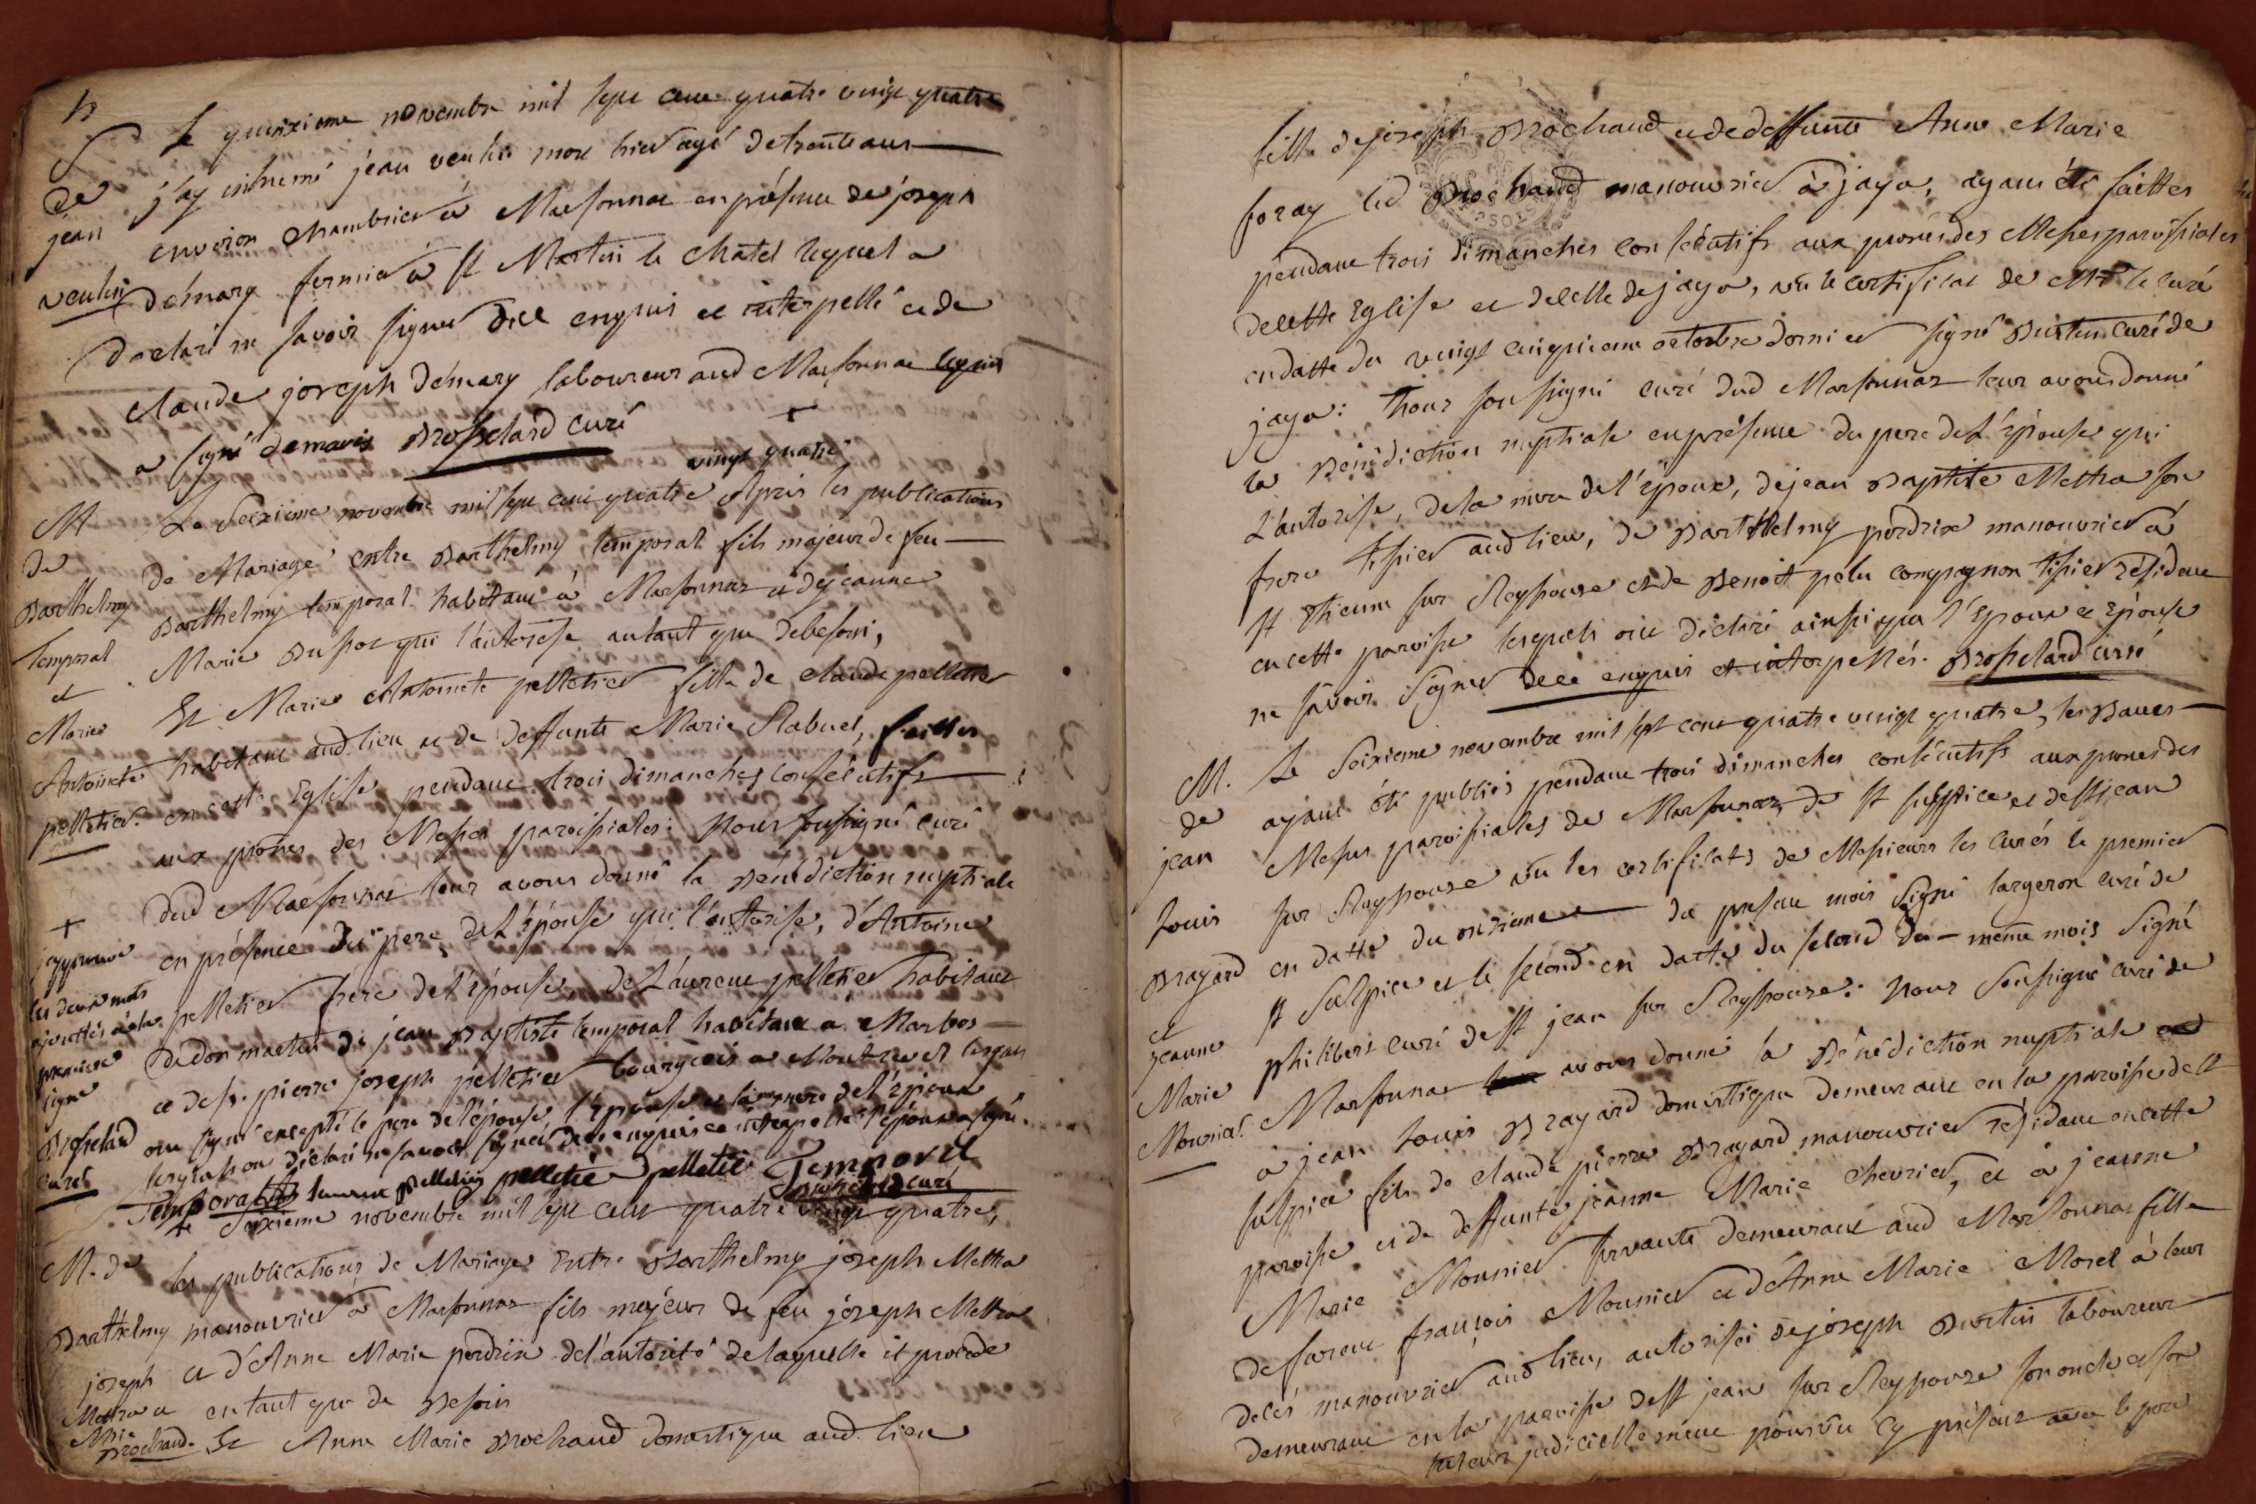 S
de
jean
veulin
le quinzieme novembre mil sept cent quatre vingt quatre
j'ay inhumé jean veulin mort hier agé de trente ans
environ chambrier à Marsonnas en présence de joseph
démary fermier à st Martin le Chatel lequel a
declaré ne savoir signer de ce enquis et interpellé et de
claude joseph démary laboureur aud Marsonnas lequel
a signé demarix Brosselard curé
+
vingt quatre
M
de
Barthelmy
Temporal
et
Marie
Antoinete
pelletier
Le Seizieme novembre mil sept cent quatre Après les publications
de Mariage entre Barthelmy temporal fils majeur de feu
Barthelmy temporal habitant à Marsonnas et de jeanne
Marie qui l'autorise autant que de besoin,
Et Marie Antoinete pelletier fille de claude pelletier
habitant aud lieu et de deffunte Marie Rabuel, faittes
en cette Eglise pendant trois dimanches consécutifs
aux prônes des Messes paroissiales: Nous soussigné curé
dud Marsonnas leur avons donné la Bénédiction nuptiale
en présence du pere de L'épouse qui l'autorise, d'Antoine
pelletier frere de l'épouse, de Laurent pelletier habitant
de jean Baptiste temporal habitant a Marbos
et de sr. pierre joseph pelletier bourgeois a Montrevel lesquels
ont signé excepté le pere de l'épouse l'épouse et la mere de l'époux
lesquels ont déclaré ne savoir signer de ce enquis et interpellés l'époux a signé.
+
j'approuve
les deux mots
ajouttés à la
premiere
ligne
Brosselard
curé
Temporal laurent pelletier pelletié pelletié Temporal
Brosselard curé
M. de
Barthelmy
joseph
Mettra et
Mrie
Brochand
Le Seizieme novembre mil sept cent quatre vingt quatre,
les publications de Mariage Entre Barthelmy joseph Mettra
manouvrier à Marsonnas fils majeur de feu joseph Mettra
et d'Anne Marie perdrix de l'autorité de laquelle il procede
en tant que de Besoin
Et Anne Marie Brochand domestique aud. lieu
fille de joseph Brochand et de deffunte Anne Marie
foray led Brochand manouvrier à jaya, ayant été faittes
pendant trois dimanches consécutifs aux prones des Messes paroissiales
de cette Eglise et de celle de jaya, vû le certificat de Mr le curé
en datte du vingt cinquieme octobre dernier signé Burtin curé de
jaya: Nous soussigné curé dud Marsonnas leur avons donné
la Bénédiction nuptiale en présence du pere de L'épouse qui
L'autorise, de la mere de l'époux, de jean Baptiste Mettra son
frere tissier aud lieu, de Barthelmy perdrix manouvrier à
st Etienne sur Reyssouze et de Benoit pelu compagnon tissier résident
en cette paroisse lesquels ont déclaré ainsi que l'époux et l'épouse
ne savoir signer de ce enquis et interpellés. Brosselard curé
M.
de
jean
Louis
Brayard
et
jeanne
Marie
Mounier.
Le Seizieme novembre mil sept cent quatre vingt quatre, les Bancs
ayant été publiés pendant trois dimanches consécutifs aux prones des
Messes paroissiales de Marsonnas, de st sulpice et de st jean
sur Reyssouze vû les certificats de Messieurs les Curés le premier
en datte du onzieme du present mois signé largeron curé de
st Sulpice et le second en datte du second du même mois signé
philibert curé de st jean sur Reyssouze: Nous soussigné curé de
Marsonnas avons donné la Bénédiction nuptiale
à jean Louis Brayard domestique demeurant en la paroisse de st
sulpice fils de claude pierre Brayard manouvrier résidant en cette
paroisse et de deffunte jeanne Marie Chevrier, et à jeanne
Marie Mounier servante demeurant aud Marsonnas fille
de françois Mounier et d'Anne Marie Morel à leur
decès manouvriers aud lieu, autorisée de joseph Burtin laboureur
demeurant en la paroisse de st jean sur Reyssouze son oncle et son
tuteur judiciellement pourvu cy présent avec le pere